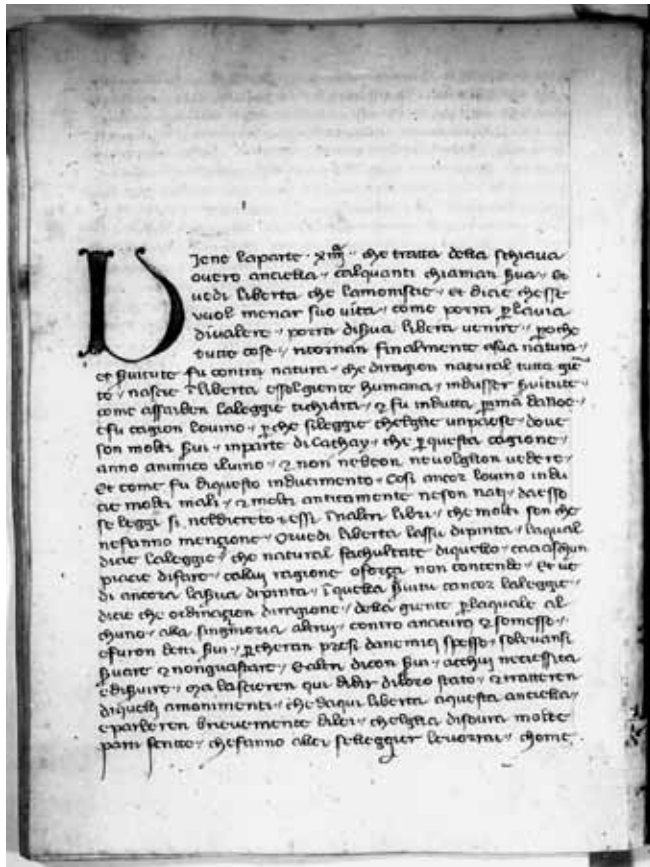 Viene laparte · xiiij · che tratta della schiava
overo anciella · calquanti chiaman s̃ua · Et
vedi liberta che lamoniscie · et dicie chesse
vuol menar suo vita · come porra p̱ lavia
divalere · porra dis̃ua libera venire · p̱oche
tutte cose · ritornan finalmente asua natura ·
et s̃uitute fu contra natura · che diragion natural tutta giē
te · nascie ī liberta essolgiente humana · indusser s̃uitute ·
come affarben laleggie tichiara · ⁊ fu indutta p̱ma danoe ·
e fu cagion lovino · p̱che sileggie chelglie unpaese · dove
son molti s̃ui · inparte di Cathay · che p̱questa cagione ·
anno animico iluino · ⁊ non nebeon nevolglion vedere ·
Et come fu diquesto inducimento · Cosi ancor lovino indu
cie molti mali · ⁊ molti anticamente neson nati · daesso
se leggi si neldicreto · essi ī naltri libri · che molti son che
nefanno mençione · Or vedi liberta lassu dipinta · laqual
dicie laleggie · che natural fachultate diquello ·
piacie difare · ragione oforça non contende · et ve
di ancora las̃ua dipinta · ī questa s̃uitu ancor laleggie ·
dicie che ordinaçion diragione · della giente p̱laquale al
chuno · alla singnioria altruj · contro anatura ⁊ somesso ·
efuron detti s̃ui · p̱cheran presi danemicj spesso · solevansi
s̃uare ⁊ nonguastare · Et altri dicon s̃ui · acchuj neciessita
e dis̃uire · Ma lascieren qui didir diloro stato · ⁊ tratteren
diquelli amonimenti · che daqui liberta aquesta anciella ·
e parleren brievemente dilei · chelglia disovra molte
parti scritte · chefanno allei selleggier levorrai · chome